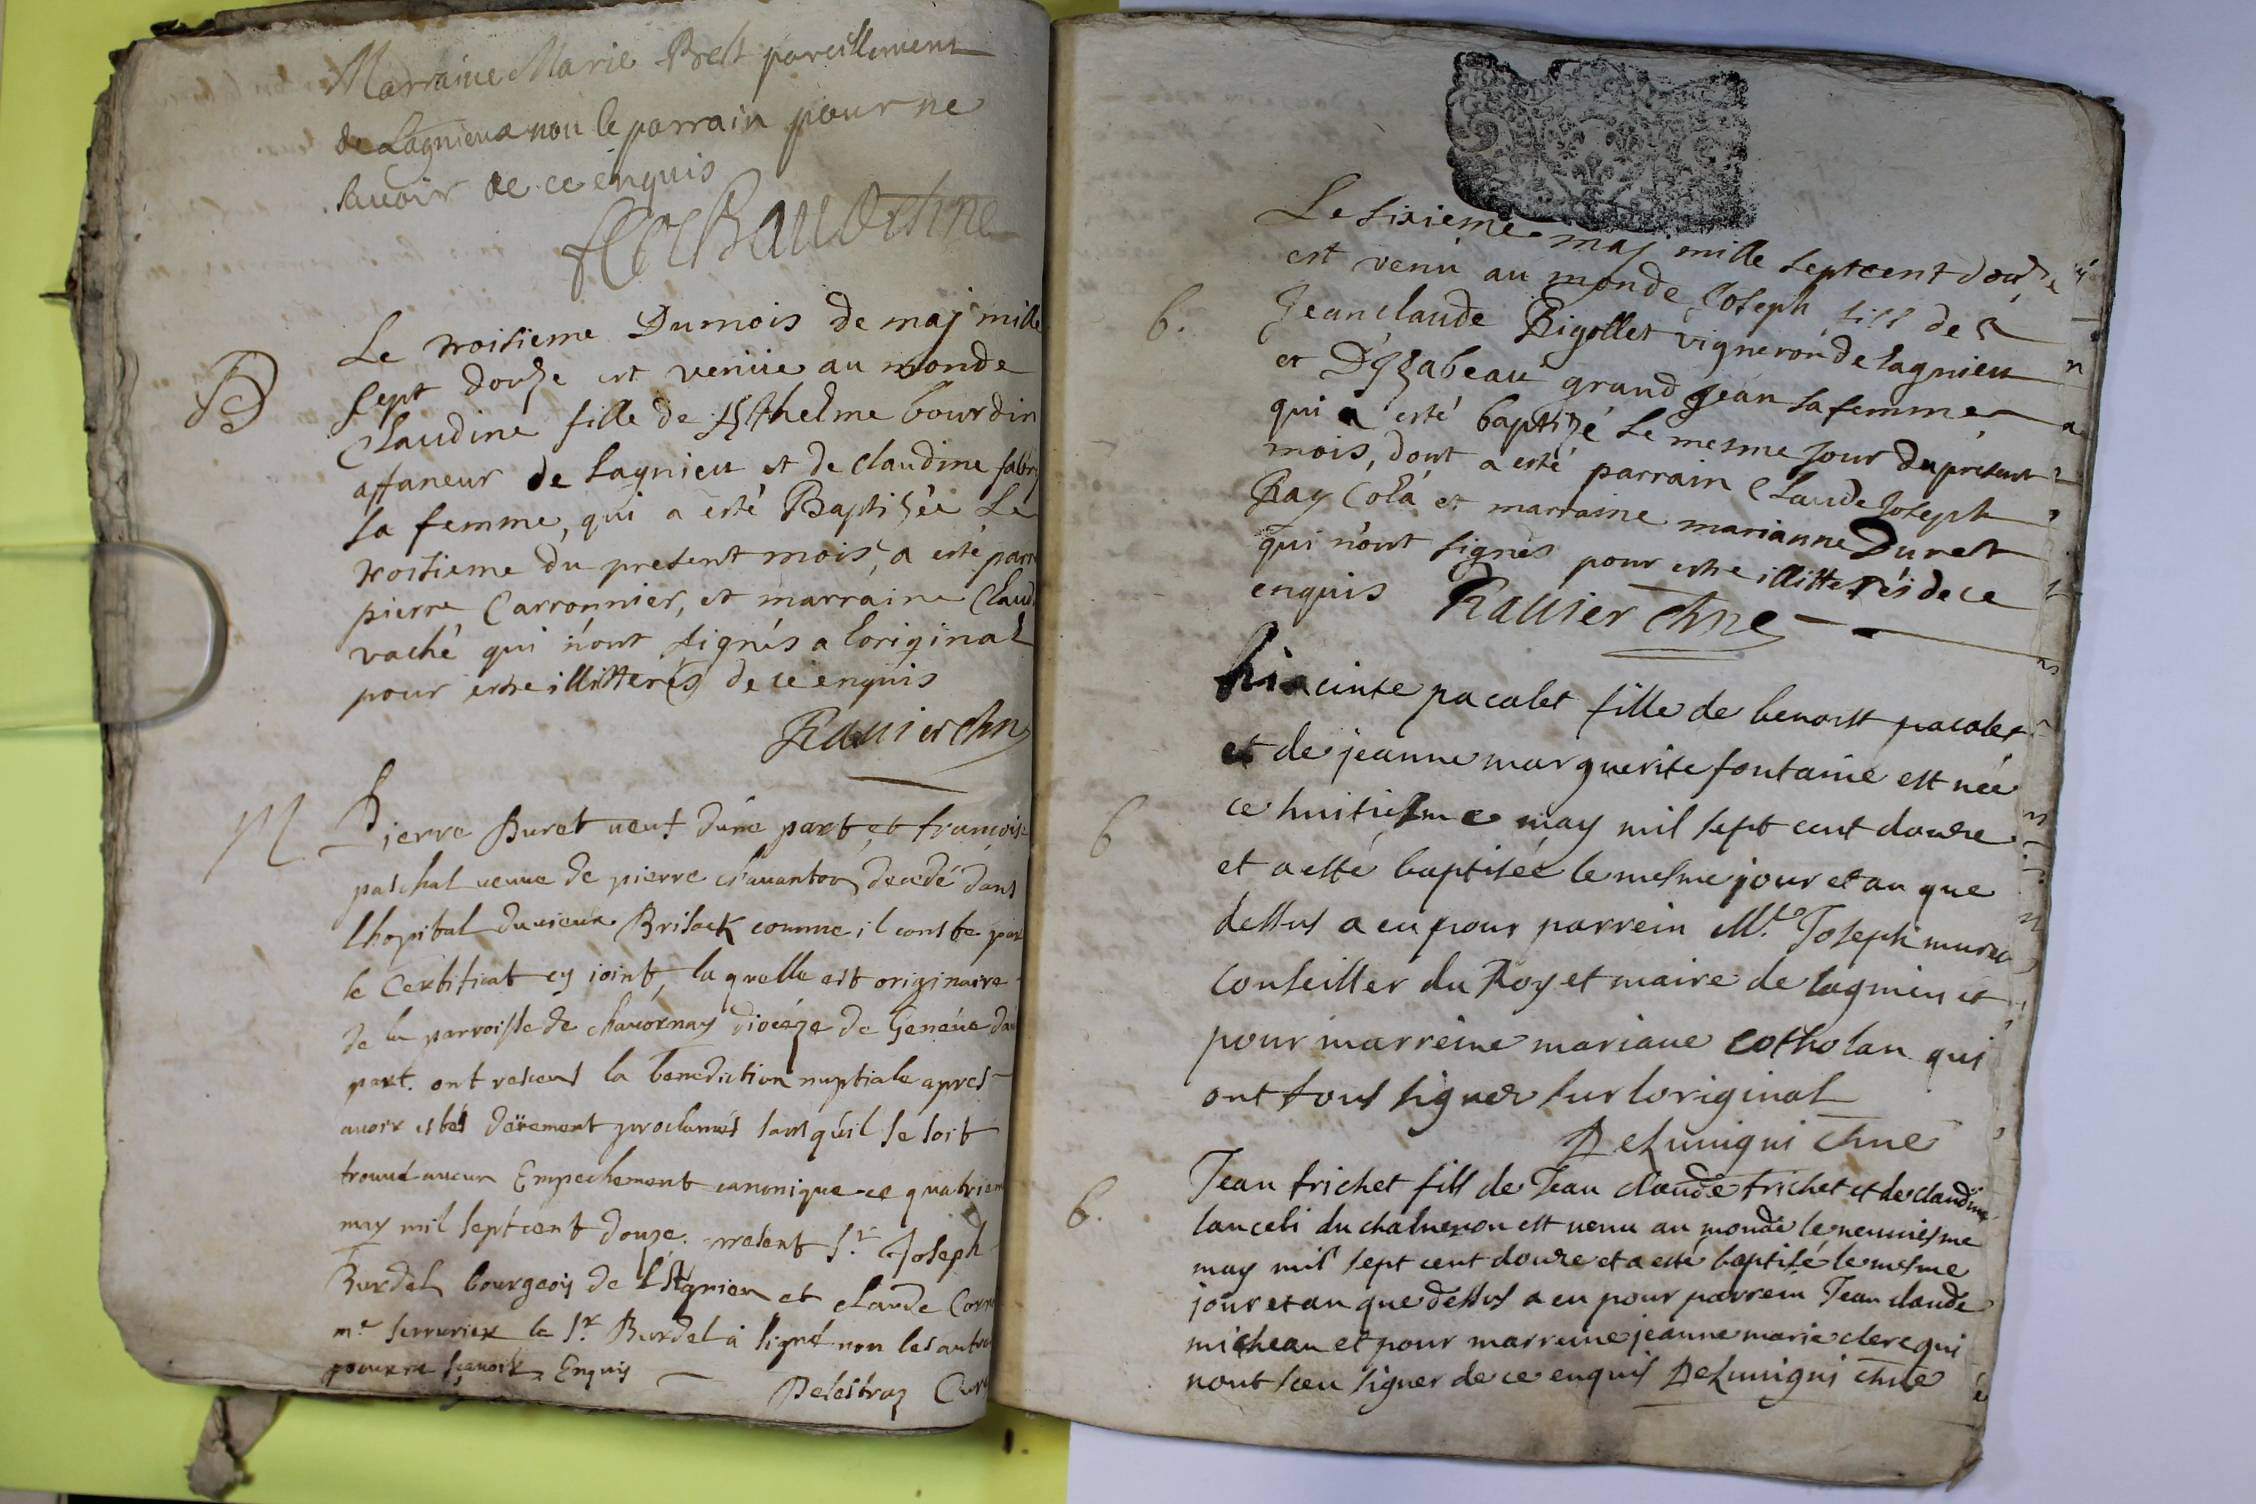 Marraine Marie Brest pareillement
de Lagnieu non le parrain pour ne
savoir de ce enquis
B
Le troisieme Dumois de maj mille
sept douze est venüe au monde
Claudine fille de Anthelme bourdin
affaneur de Lagnieu et de claudine fabry
sa femme, qui a esté Baptizée Le
troisieme du present mois, a esté parr
pierre Carronnier, et marraine Claud
vaché qui n'ont signés a loriginal
pour estre illitterés de ce enquis
Ravier chne
M
Pierre Buret veuf dune part, et francoise
paschal veuve de pierre chavanton decedé dans
lhopital du vieux Brisack comme il conste par
le Certificat cy joint, la quelle est originaire
de la parroisse de chavornay diocéze de Genéve dau
part. ont receus la benediction nuptiale apres
avoir estés düement proclamés sans qu'il se soit
trouvé aucun Empechement canonique ce quatriem
may mil sept cent douze. present Sr. Joseph
Burdel bourgeois de Lagnieu et claude Corn
me serrurier le Sr. Burdel à signé non les autres
pour ne sçavoir Enquis
Delestraz Curé
Le sixieme maj mille septcent douze
est venu au monde Joseph fils de
b.
Jean claude Rigollet vigneron de lagnieu
et D'yzabeau grand Jean sa femme
qui a esté baptizé le mesme jour du present
mois, dont a esté parrain Claude Joseph
Ray Cola et marraine marianne Duret
qui n'ont signés pour estre illitterés de ce
enquis Ravier chne
hiacinte pacalet fille de benoist pacalet
et de jeanne marguerite fontaine est née
b
ce huitiesme may mil sept cent douze
et a esté baptisée le mesme jour et an que
dessus a eu pour parrein Mre. Joseph
conseiller du Roy et maire de lagnieu et
pour marreine mariane cotholan qui
ont tous signer sur loriginal
DeLunigni chne
b.
Jean trichet fils de Jean claude trichet et de claudine
lanceli du est venu au monde le neuviesme
may mil sept cent douze et a esté baptisé le mesme
jour et an que dessus a eu pour parrein Jean claude
micheau et pour marreine jeanne marie clerc qui
nont sceu signer de ce enquis DeLunigni chne